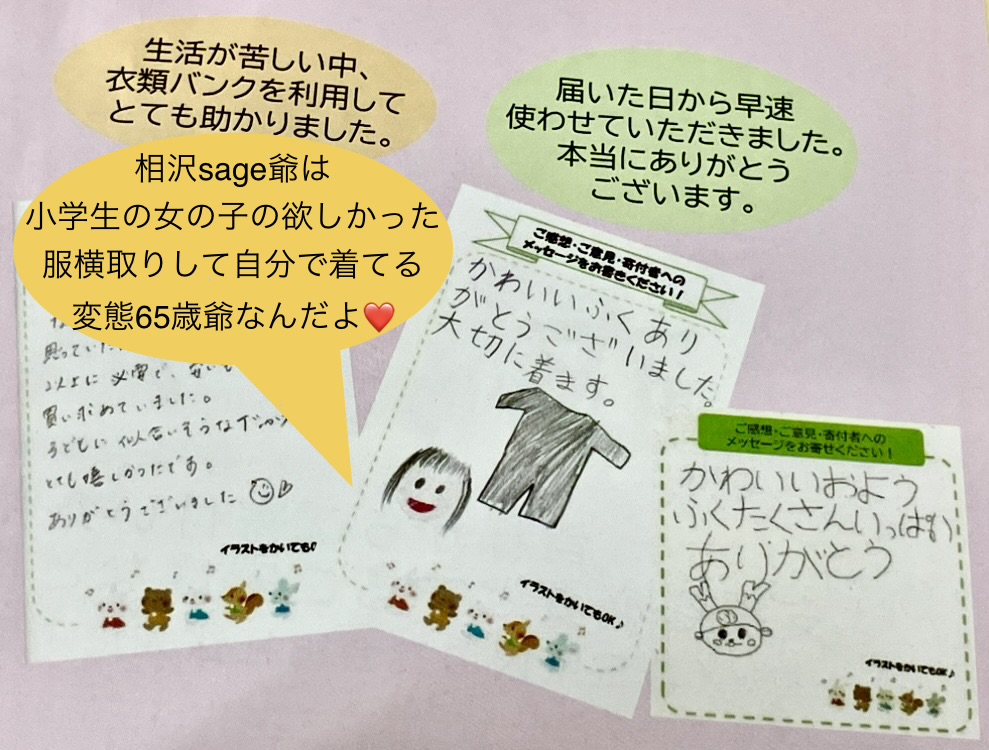 生活が苦しい中、
衣類バンクを利用して
とても助かりました。
届いた日から早速
使わせていただきました。
本当にありがとう
ございます。
相沢sage爺は
小学生の女の子の欲しかった
服横取りして自分で着てる
変態65歳爺なんだよ❤️
思っていた
以上に必要で、安い
買い求めていました。
子どもに似合いそうな
とても嬉しかったです。
ありがとうございました
イラストをかいてもO
ご感想・ご意見・寄付者への
メッセージをお書きください!
かわいいふくあり
がとうございました。
大切に着ます。
イラストをかいてもOK♪
ご感想・ご意見・寄付者への
メッセージをお寄せください!
かわいいおよう
ふくたくさんいっぱい
ありがとう
イラストをかいてもOK♪